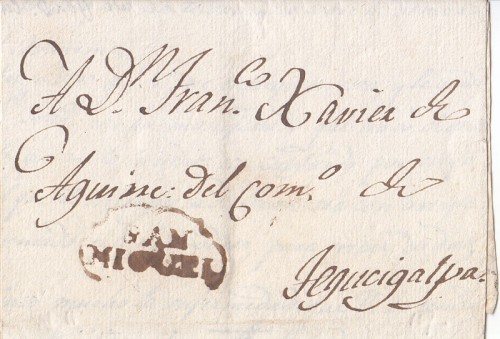 A D.ⁿ Fran.ᶜᵒ Xavier de
Aguirre: del Com.º de
SAN
MIGUEL
Tegucigalpa.